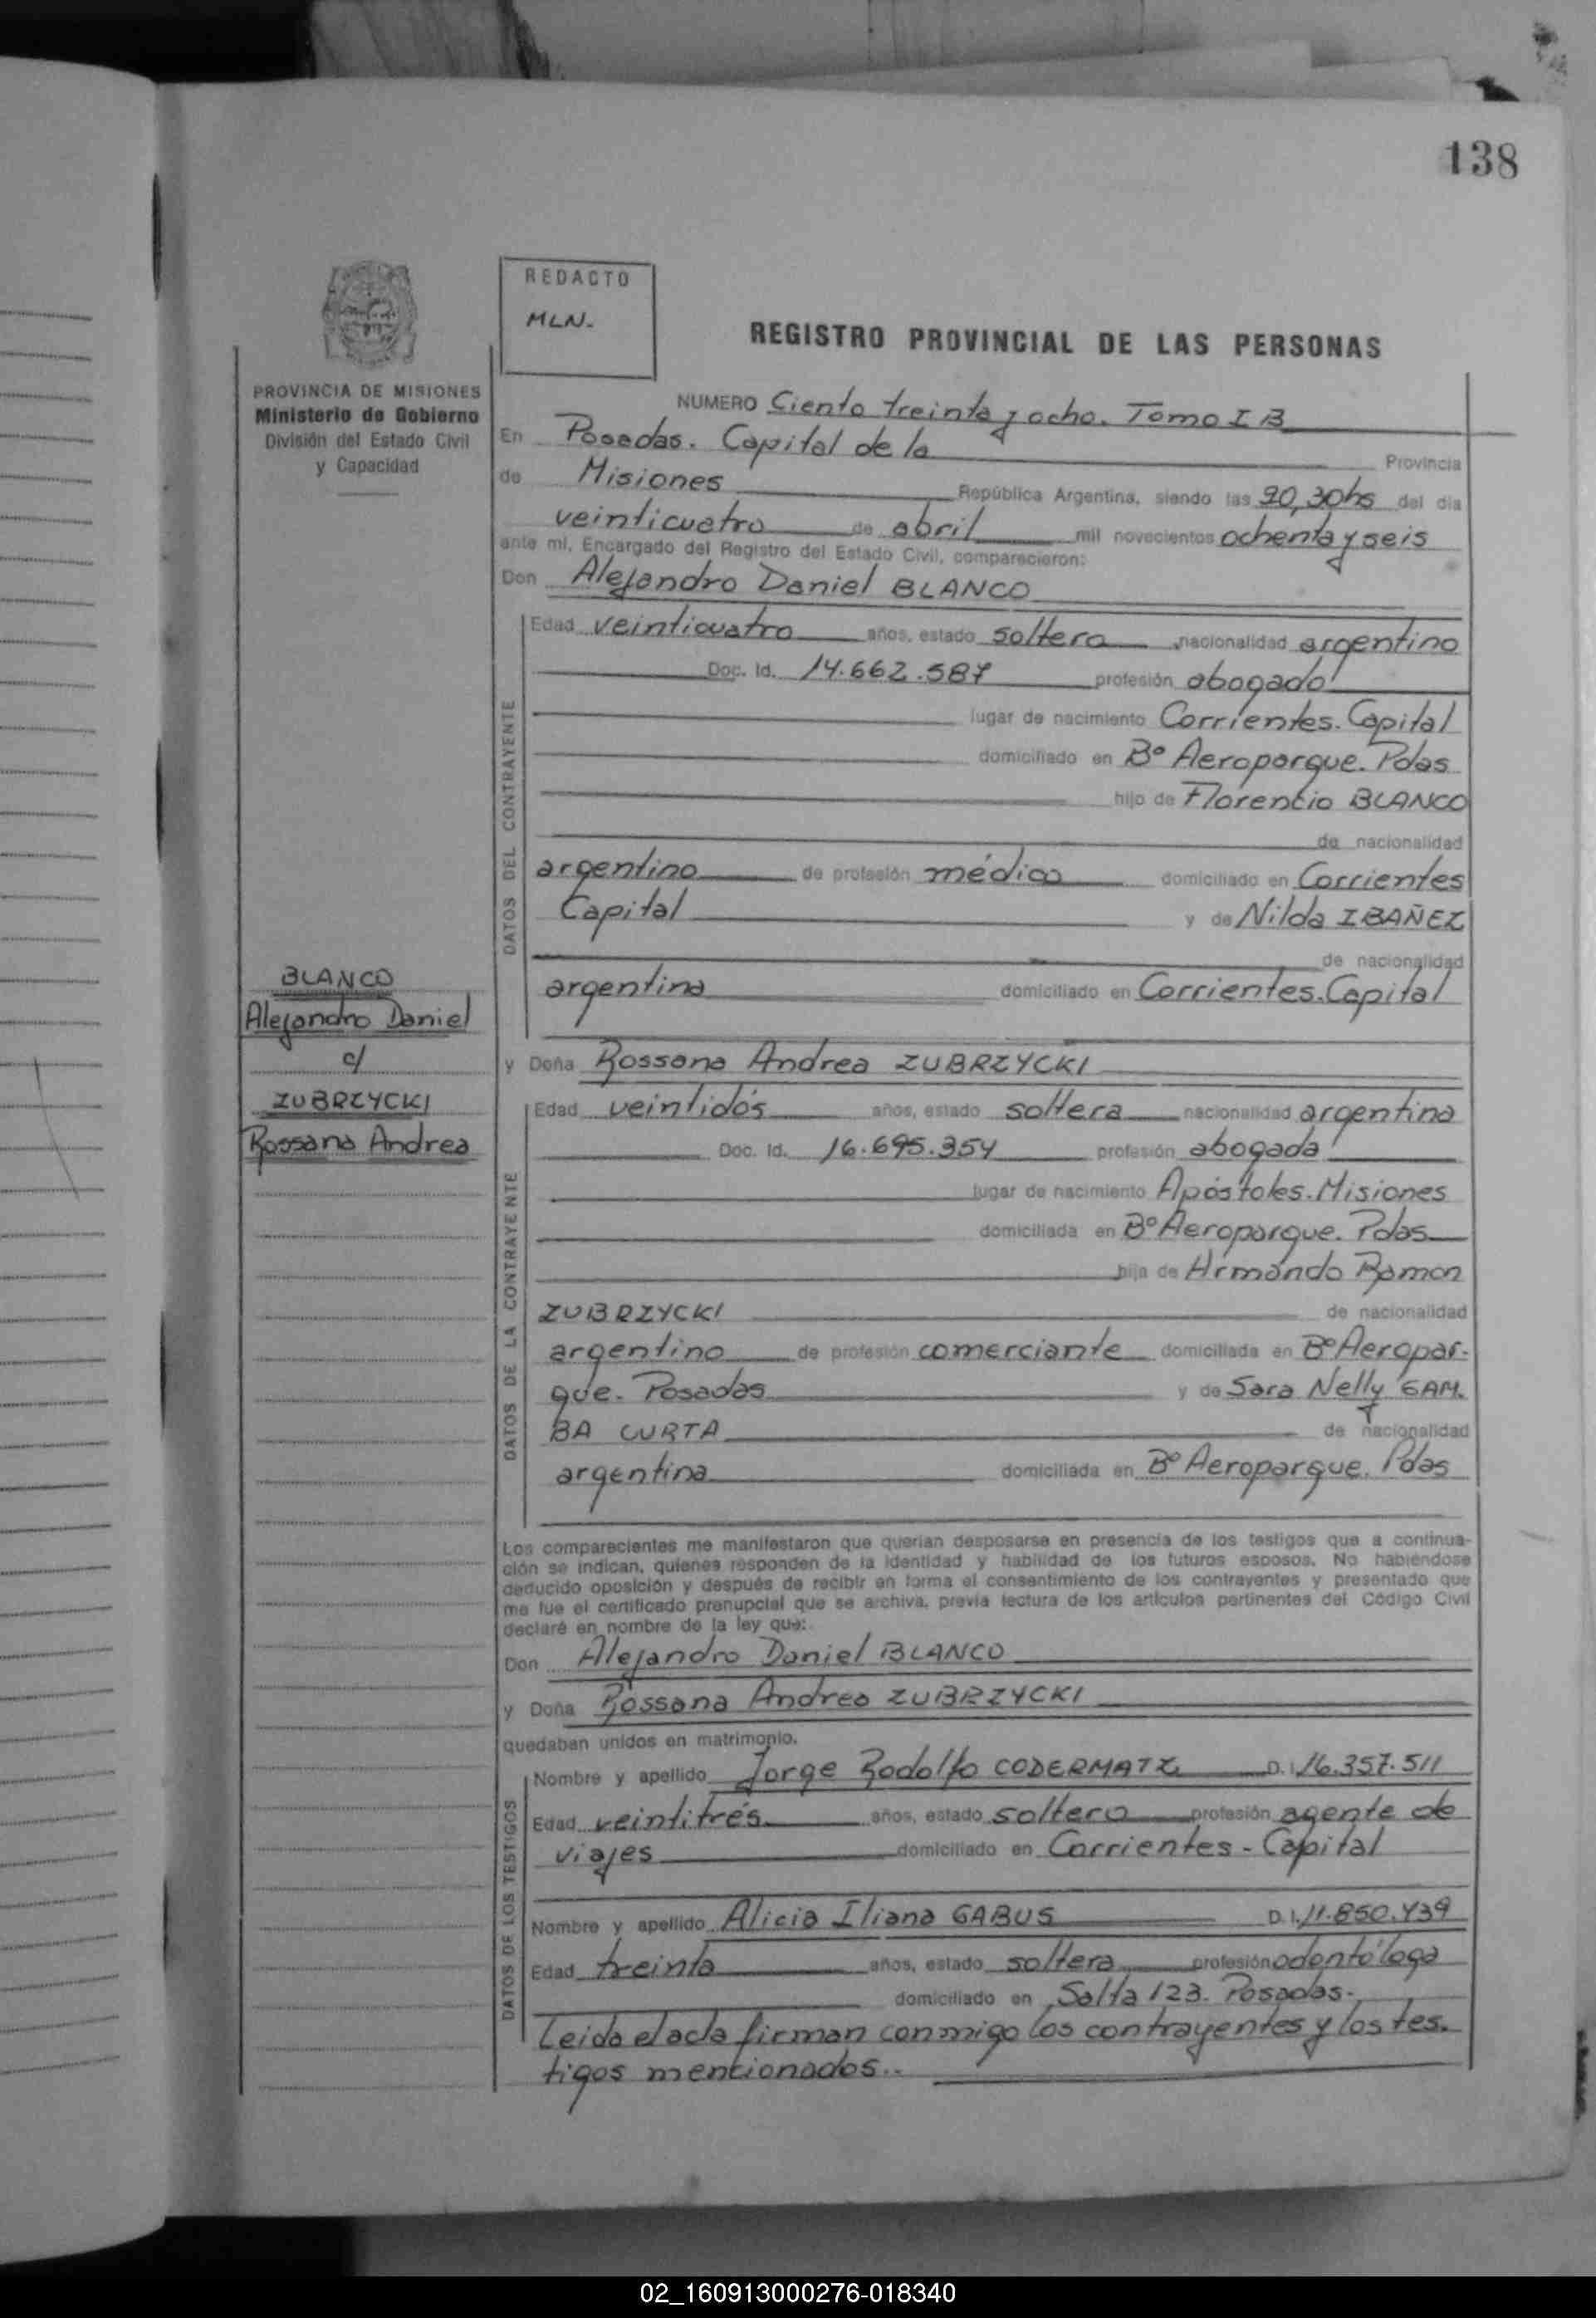 138
REDACTO
MLN.
REGISTRO PROVINCIAL DE LAS PERSONAS
PROVINCIA DE MISIONES
Ministerio de Gobierno
División del Estado Civil
y Capacidad
NUMERO Ciento treinta y ocho. Tomo I B
En Posadas. Capital de la Provincia
de Misiones República Argentina, siendo las 20,30hs del día
veinticuatro de abril mil novecientos ochenta y seis
ante mí, Encargado del Registro del Estado Civil, comparecieron:
Don Alejandro Daniel BLANCO
DATOS DEL CONTRAYENTE
Edad veinticuatro años, estado soltero nacionalidad argentino
Doc. Id. 14.662.587 profesión abogado
lugar de nacimiento Corrientes. Capital
domiciliado en B° Aeroparque. Pdas
hijo de Florencio BLANCO
de nacionalidad
argentino de profesión médico domiciliado en Corrientes
Capital y de Nilda IBAÑEZ
de nacionalidad
argentina domiciliado en Corrientes. Capital
BLANCO
Alejandro Daniel
c/
ZUBRZYCKI
Rossana Andrea
y Doña Rossana Andrea ZUBRZYCKI
DATOS DE LA CONTRAYENTE
Edad veintidós años, estado soltera nacionalidad argentina
Doc. Id. 16.695.354 profesión abogada
lugar de nacimiento Apóstoles. Misiones
domiciliada en B° Aeroparque. Pdas
hija de Armando Ramon
ZUBRZYCKI de nacionalidad
argentino de profesión comerciante domiciliada en B° Aeropar-
que. Posadas y de Sara Nelly GAM-
BA CURTA de nacionalidad
argentina domiciliada en B° Aeroparque. Pdas
Los comparecientes me manifestaron que querían desposarse en presencia de los testigos que a continua-
ción se indican, quienes responden de la identidad y habilidad de los futuros esposos. No habiéndose
deducido oposición y después de recibir en forma el consentimiento de los contrayentes y presentado que
me fue el certificado prenupcial que se archiva, previa lectura de los artículos pertinentes del Código Civil
declaré en nombre de la ley que:
Don Alejandro Daniel BLANCO
y Doña Rossana Andrea ZUBRZYCKI
quedaban unidos en matrimonio.
DATOS DE LOS TESTIGOS
Nombre y apellido Jorge Rodolfo CODERMATZ D.I. 16.357.511
Edad veintitrés años, estado soltero profesión agente de
viajes domiciliado en Corrientes - Capital
Nombre y apellido Alicia Iliana GABUS D.I. 11.850.439
Edad treinta años, estado soltera profesión odontóloga
domiciliado en Salta 123. Posadas.
Leida el acta firman conmigo los contrayentes y los tes-
tigos mencionados..
02_160913000276-018340